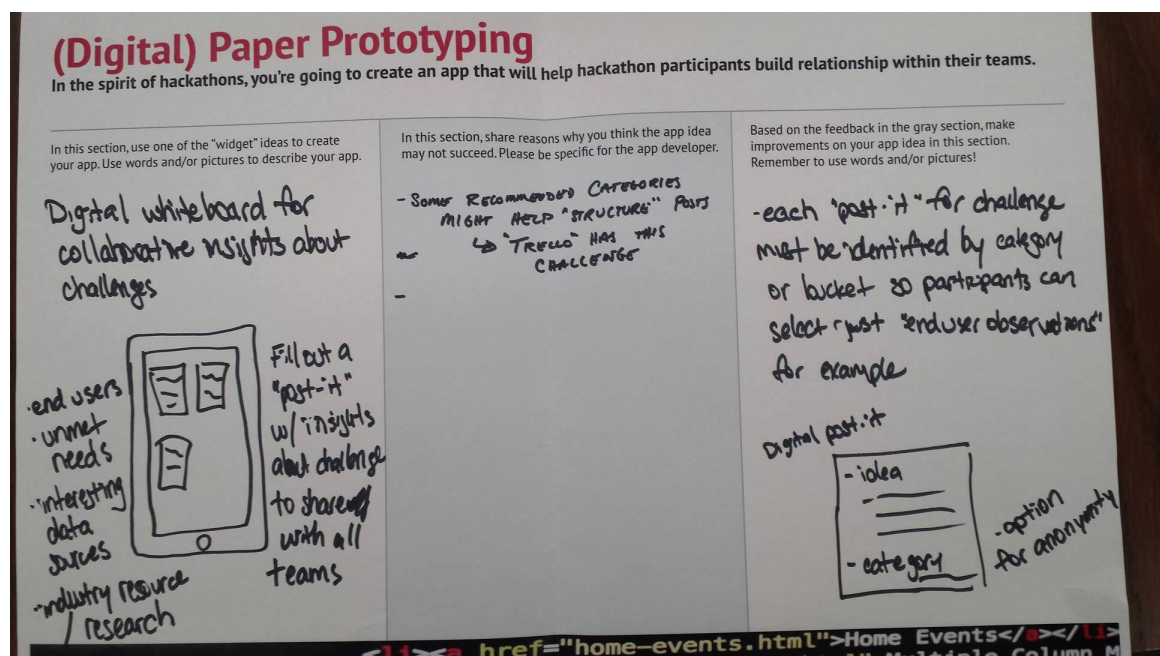 (Digital) Paper Prototyping
In the spirit of hackathons, you're going to create an app that will help hackathon participants build relationship within their teams.
In this section, use one of the "widget" ideas to create
your app. Use words and/or pictures to describe your app.
Digital whiteboard for
collaborative insights about
challenges
·end users
·unmet
needs
·interesting
data
sources
·industry resource
/ research
Fill out a
"post-it"
w/ insights
about challenge
to share
with all
teams
In this section, share reasons why you think the app idea
may not succeed. Please be specific for the app developer.
- SOME RECOMMENDED CATEGORIES
MIGHT HELP "STRUCTURE" POSTS
↳ "TRELLO" HAS THIS
CHALLENGE
-
-
Based on the feedback in the gray section, make
improvements on your app idea in this section.
Remember to use words and/or pictures!
-each "post-it" for challenge
must be identified by category
or bucket so participants can
select just "enduser observations"
for example
Digital post-it
-idea
-category
-option
for anonymity
<li><a href="home-events.html">Home Events</a></li>
Multiple Column M